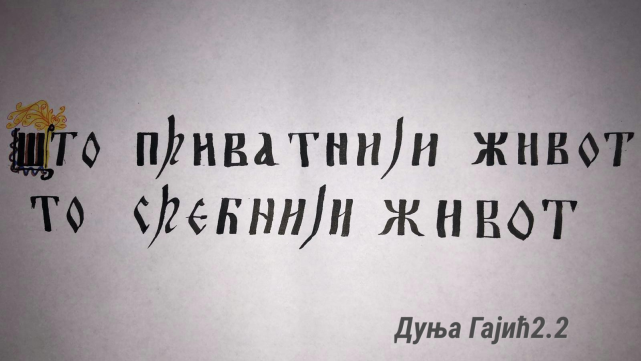 Што приватнији живот
то срећнији живот
Дуња Гајић2.2